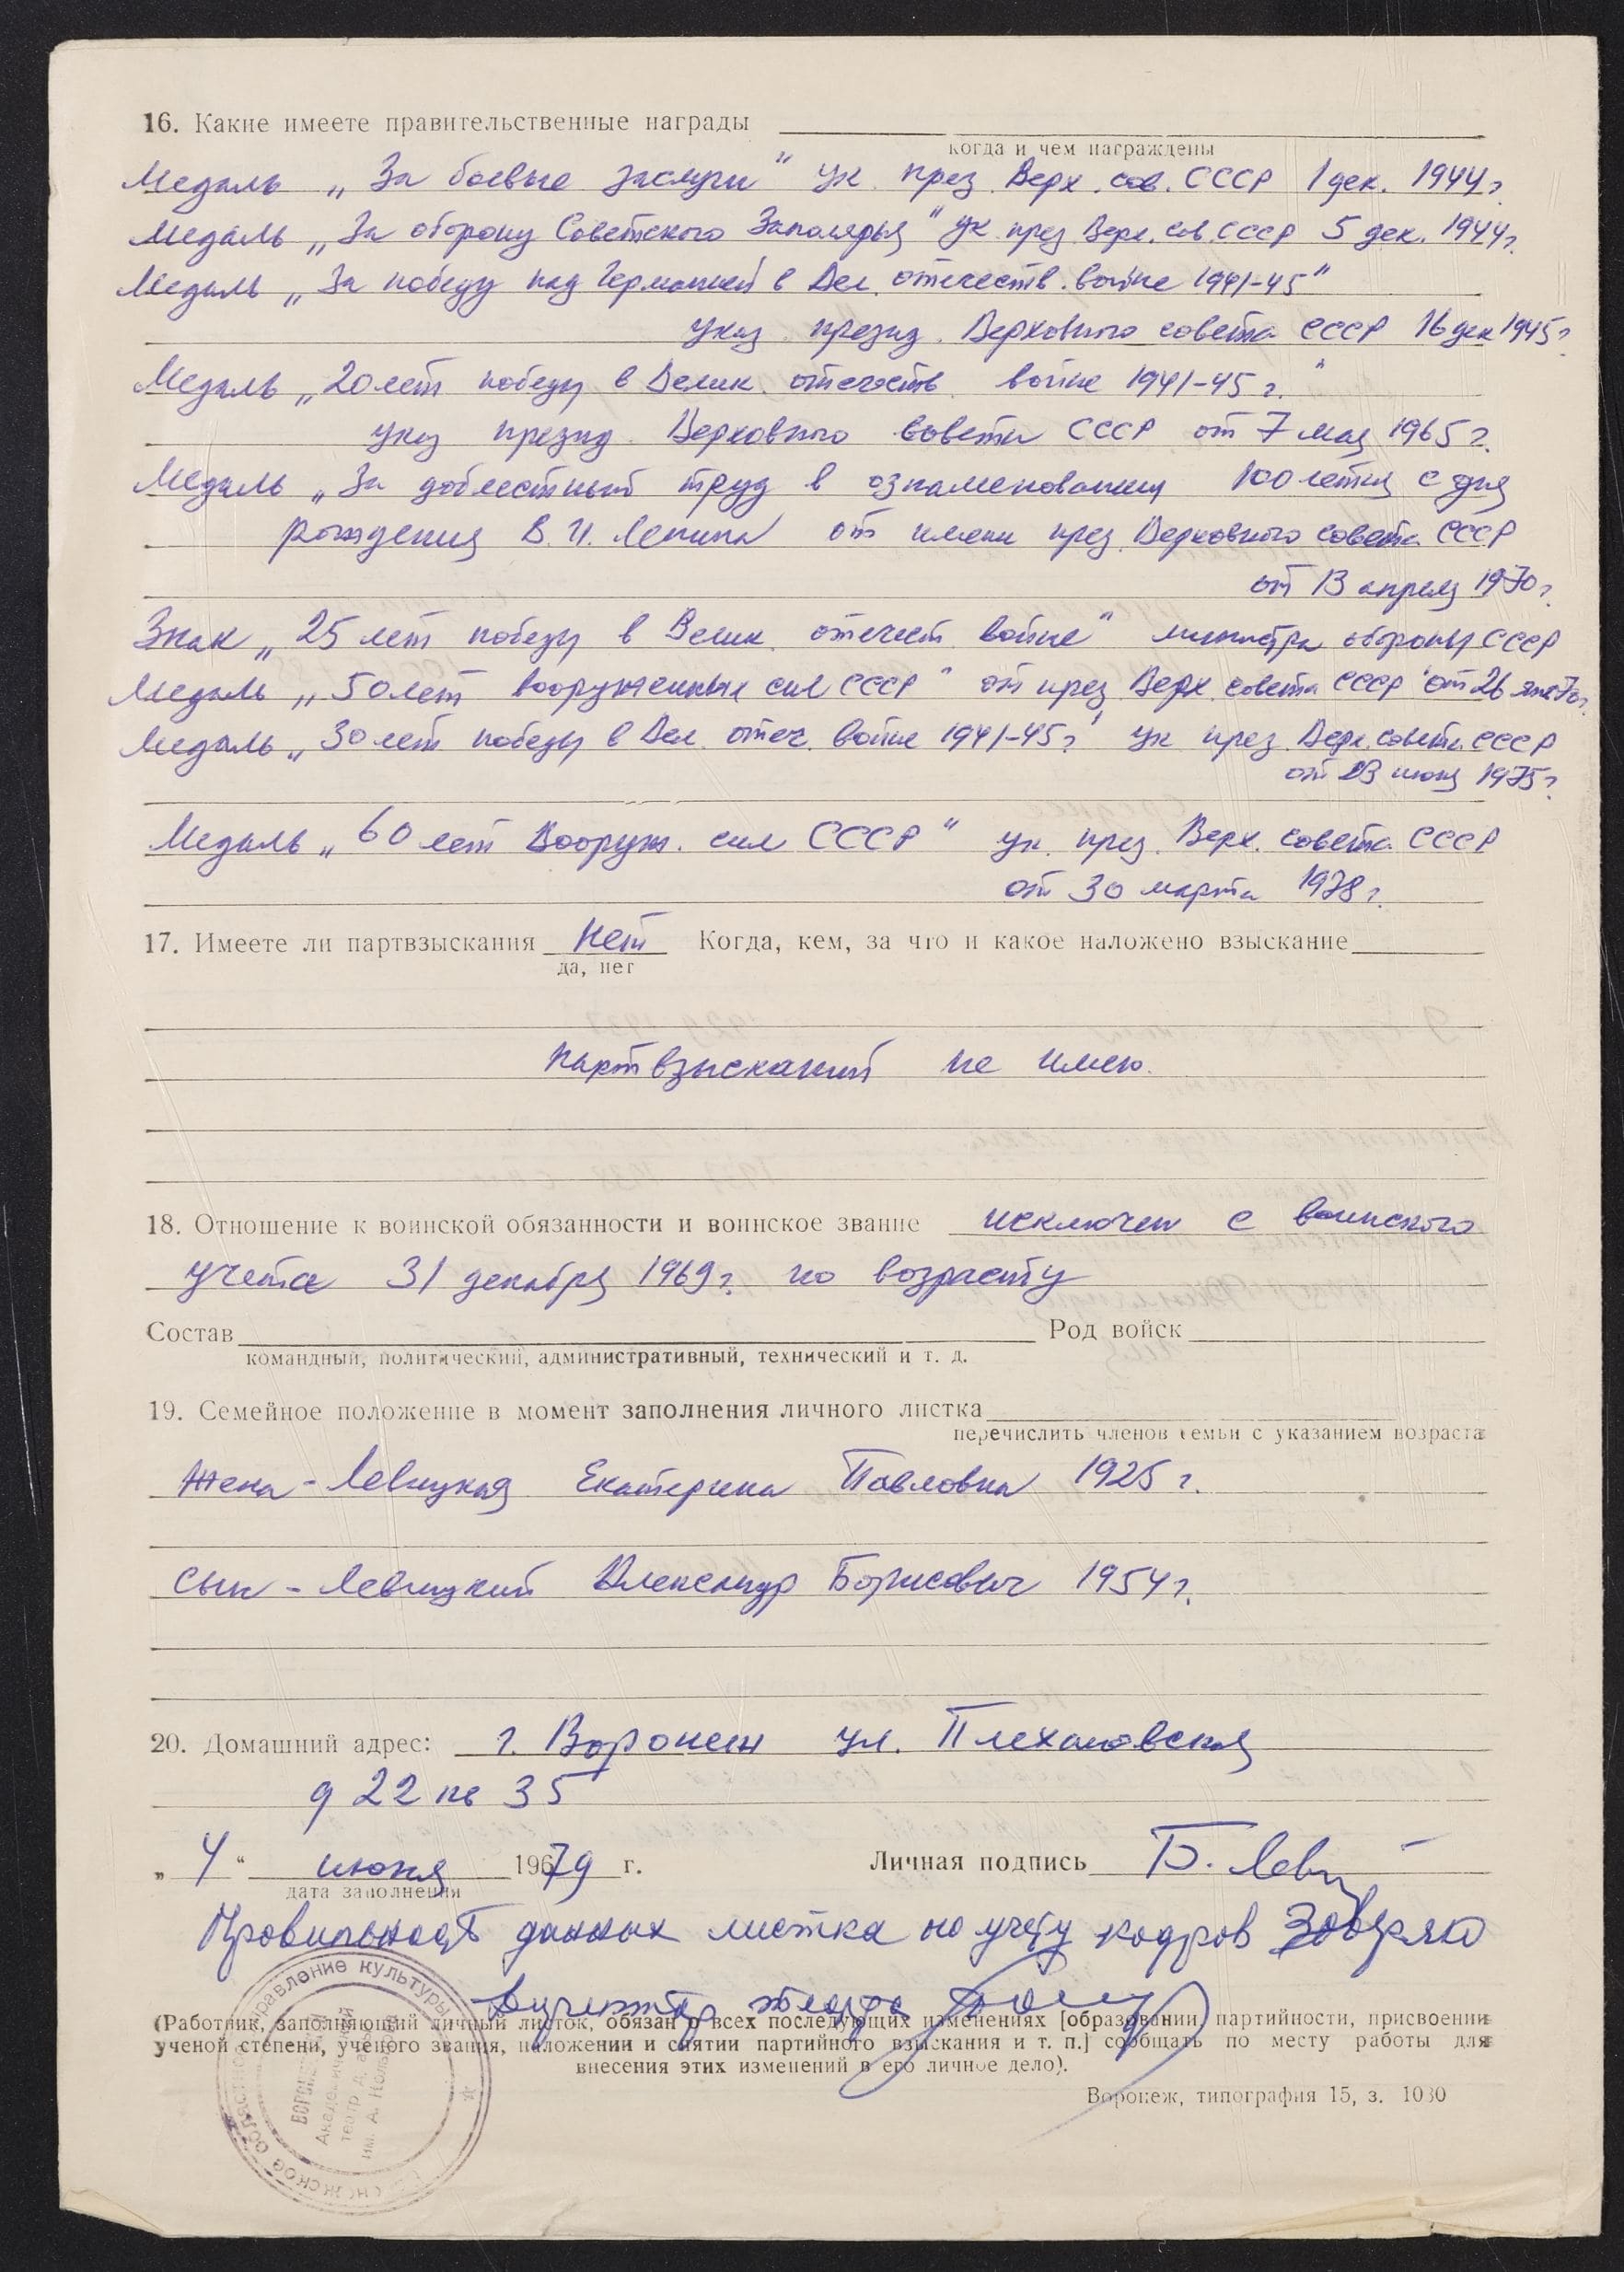 16. Какие имеете правительственные награды
когда и чем награждены
Медаль „За боевые заслуги“ ук. през. Верх. сов. СССР 1 дек. 1944 г.
Медаль „За оборону Советского Заполярья“ ук. през. Верх. сов. СССР 5 дек. 1944 г.
Медаль „За победу над Германией в Вел. отечеств. войне 1941-45“
указ. презид. Верховного совета СССР 16 дек 1945 г.
Медаль „20 лет победы в Велик. отечеств. войне 1941-45 г.“
указ презид. Верховного совета СССР от 7 мая 1965 г.
Медаль „За доблестный труд в ознаменовании 100 летия с дня
рождения В. И. Ленина от имени през. Верховного совета СССР
от 13 апреля 1970 г.
Знак „25 лет победы в Велик. отечест. войне“ министра обороны СССР
Медаль „50 лет вооруженных сил СССР“ от през. Верх. совета СССР от 26
Медаль „30 лет победы в Вел. отеч. войне 1941-45 г.“ ук през. Верх. совета СССР
от 23 июня 1975 г.
Медаль „60 лет Вооруж. сил СССР“ ук. през. Верх. совета СССР
от 30 марта 1978 г.
17. Имеете ли партвзыскания нет Когда, кем, за что и какое наложено взыскание
да, нет
партвзысканий не имею.
18. Отношение к воинской обязанности и воинское звание исключен с воинского
учета 31 декабря 1969 г. по возрасту
Состав Род войск
командный, политический, административный, технический и т. д.
19. Семейное положение в момент заполнения личного листка
перечислить членов семьи с указанием возраста
Жена - Левицкая Екатерина Павловна 1925 г.
сын - Левицкий Александр Борисович 1954 г.
20. Домашний адрес: г. Воронеж ул. Плехановская
д 22 кв 35
„4“ июня 1979 г. Личная подпись Б. Леви
дата заполнения
Правильность данных листка по учету кадров Заверяю
Директор театра
(Работник, заполняющий личный листок, обязан о всех последующих изменениях [образовании, партийности, присвоении
ученой степени, ученого звания, наложении и снятии партийного взыскания и т. п.] сообщать по месту работы для
внесения этих изменений в его личное дело).
Воронеж, типография 15, з. 1030
управление культуры